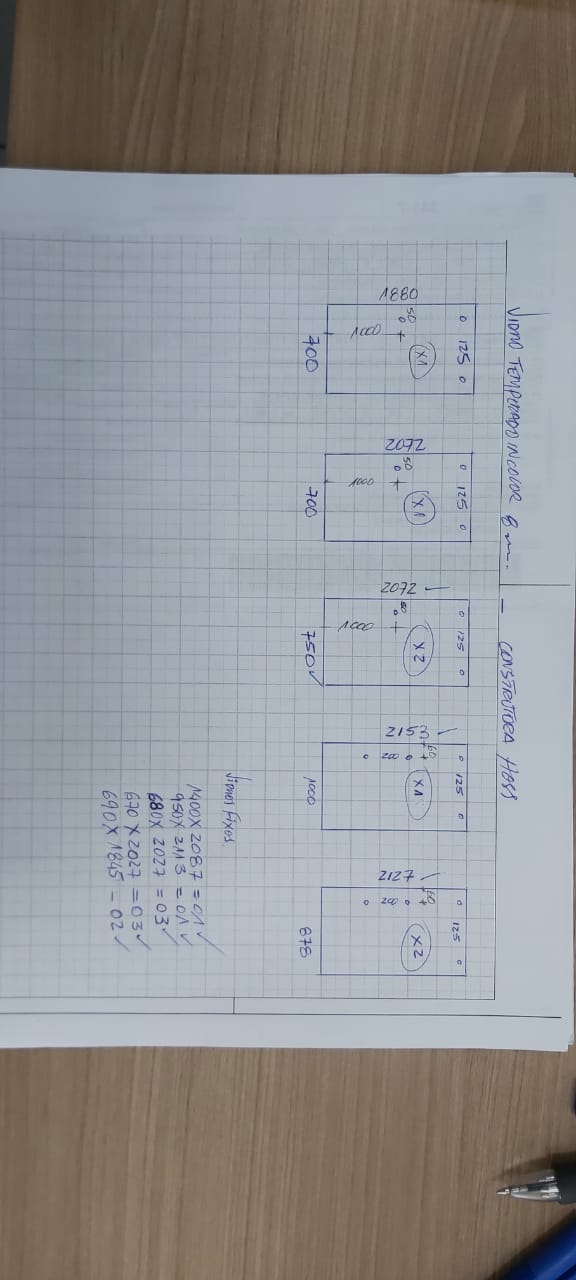 VIDRO TEMPERADO INCOLOR 8 mm. — CONSTRUTORA HASS
125
1880
50
X1
1000
700
125
2072
50
X1
1000
700
125
2072
50
X2
1000
750
125
2153
60
X1
200
1000
125
2127
60
X2
200
878
Vidros Fixos
1400 X 2087 = 01
950 X 2113 = 01
680 X 2027 = 03
670 X 2027 = 03
690 X 1845 - 02